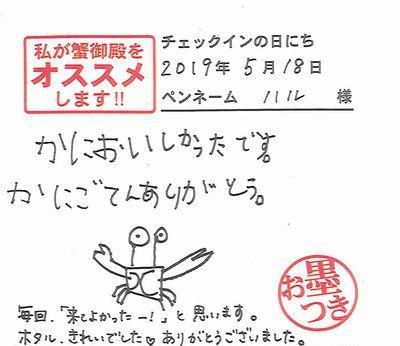 私が蟹御殿を
オススメ
します!!
チェックインの日にち
2019年 5月 18日
ペンネーム ハル 様
かにおいしかったです。
かにごてんありがとう。
お墨つき
毎回、「来てよかったー!」と思います。
ホタル、きれいでした♡ ありがとうございました。